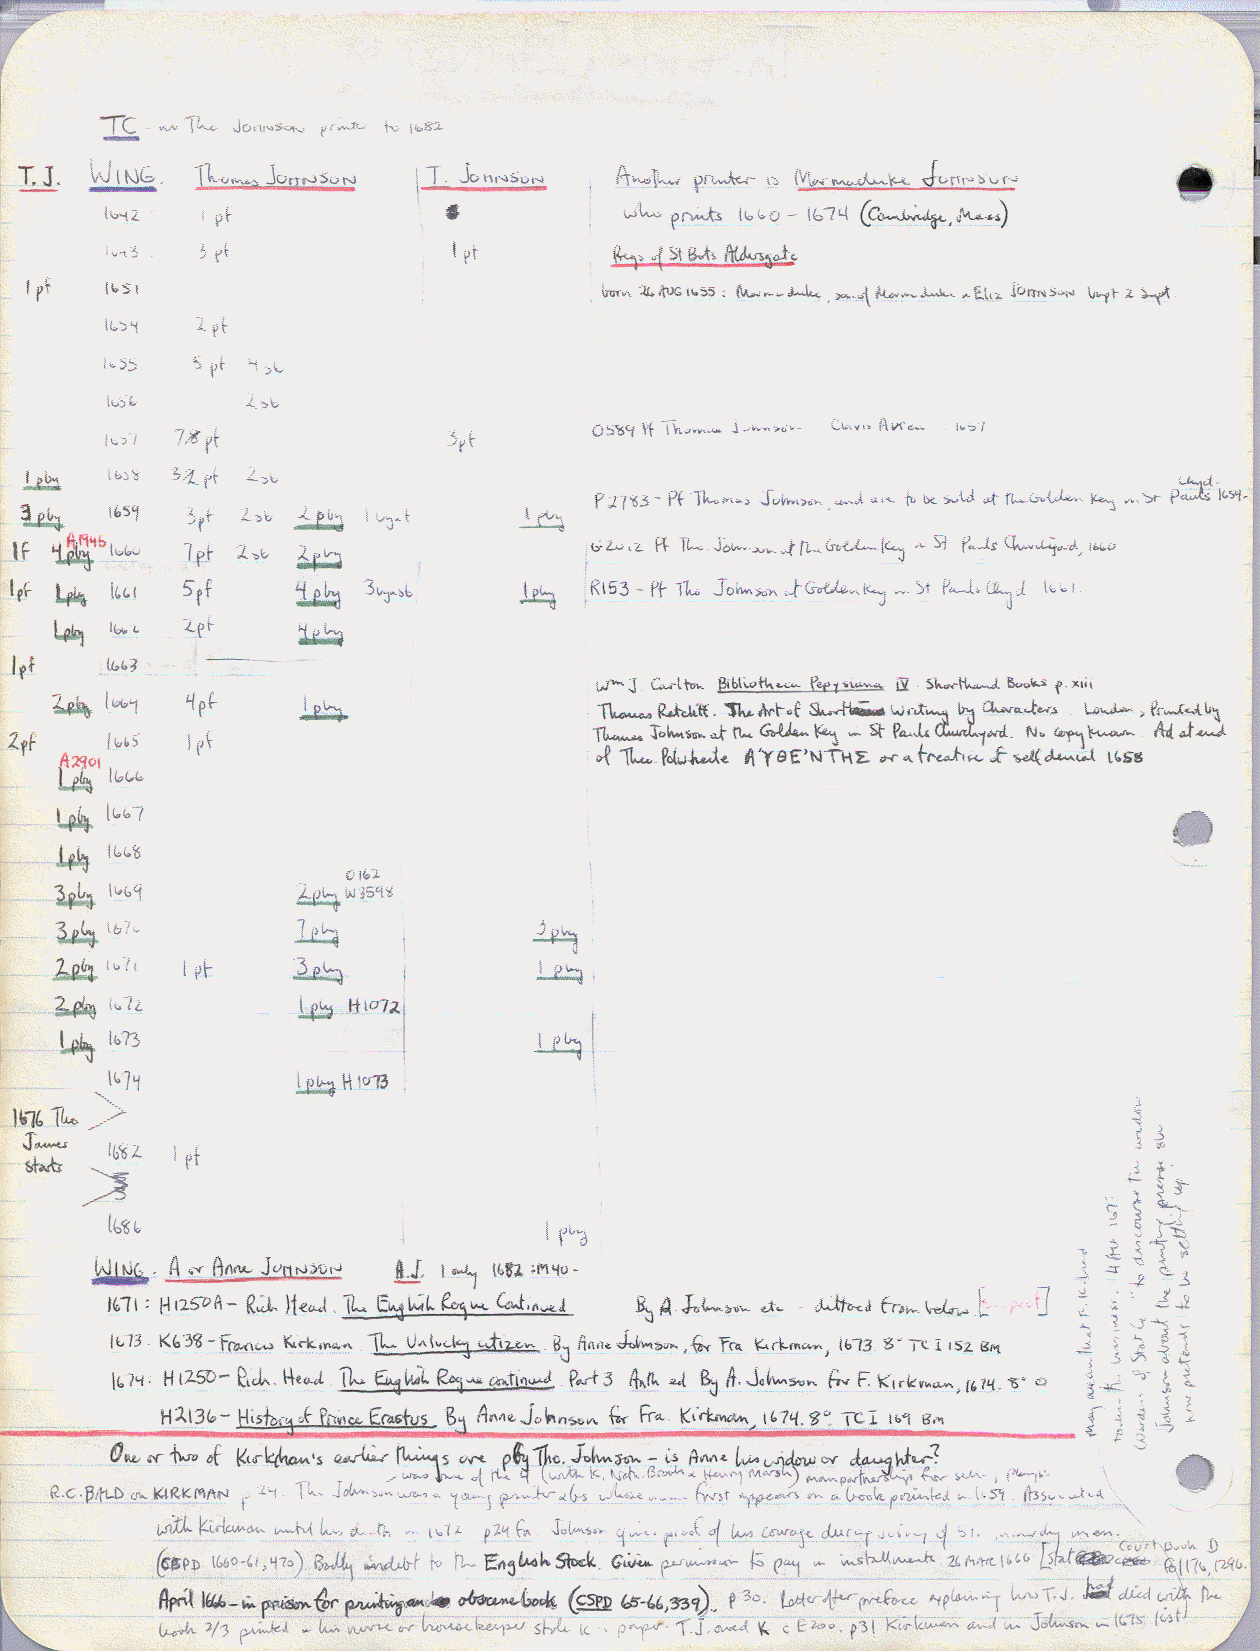 TC - no Tho Johnson prints to 1682
T.J. WING. Thomas JOHNSON T. JOHNSON
Another printer is Marmaduke Johnson
1642 1 pf
who prints 1660 - 1674 (Cambridge, Mass)
1643 3 pf 1 pf
Regs of St Bots Aldersgate
1 pf 1651
born 26 AUG 1655: Marmaduke, son of Marmaduke & Eliz JOHNSON bapt 2 Sept.
1654 2 pf
1655 5 pf 4 sb
1656 2 sb
1657 7 8 pf 3 pf
O589 Pf Thomas Johnson 1657
1 pby 1658 3 2 pf 2 sb
P2783 - Pf Thomas Johnson, and are to be sold at the Golden Key in St Pauls Chyd. 1659.
3 pby 1659 3 pf 2 sb 2 pby 1 pby
1 f 4 pby A1945 1660 7 pf 2 sb 2 pby
G2012 Pf Tho. Johnson at the Golden Key in St Pauls Churchyard, 1660
1 pf 1 pby 1661 5 pf 4 pby 1 pby
R153 - Pf Tho Johnson at Golden Key in St Pauls Chyd 1661.
1 pby 1662 2 pf 4 pby
1 pf 1663
Wm J. Carlton Bibliotheca Pepysiana IV. Shorthand Books p. xiii
2 pby 1664 4 pf 1 pby
Thomas Ratcliff. The Art of Short Writing by Characters London, Printed by
2 pf 1665 1 pf
Thomas Johnson at the Golden Key in St Pauls Churchyard. No copy known. Ad at end
of Theo. Polwheile ΑΥΘΕ'ΝΤΗΣ or a treatise of self denial 1658
A2901
1 pby 1666
1 pby 1667
1 pby 1668
O162
3 pby 1669 2 pby W3598
3 pby 1670 7 pby 3 pby
2 pby 1671 1 pf 3 pby 1 pby
2 pby 1672 1 pby H1072
1 pby 1673 1 pby
1674 1 pby H1073
1676 Tho
James
starts
1682 1 pf
1686 1 pby
WING. A or Anne JOHNSON A.J. 1 only 1682 : M40 -
1671: H1250A - Rich Head. The English Rogue Continued By A. Johnson etc - dittoed from below [suspect]
1673. K638 - Francis Kirkman The Unlucky citizen. By Anne Johnson, for Fra Kirkman, 1673 8° TC I 152 Bm
1674: H1250 - Rich. Head. The English Rogue continued. Part 3 Anth ed By A. Johnson for F. Kirkman, 1674. 8° O
H2136 - History of Prince Erastus. By Anne Johnson for Fra. Kirkman, 1674. 8° TC I 169 Bm
One or two of Kirkman's earlier things are pby Tho. Johnson - is Anne his widow or daughter?
was one of the 4 (with K, Nath. Brook & Henry Marsh) in partnership for plays
R.C. BALD on KIRKMAN p 24. Tho Johnson was a young printer whose name first appears on a book printed in 1659. Associated
with Kirkman until his death in 1672 p24 fn. Johnson gives proof of his courage during rising of 5th monarchy men.
(CSPD 1660-61, 470) Badly in debt to the English Stock. Given permission to pay in installments. 26 MAR 1666 [Stat Court Book D
April 1666 - in prison for printing obscene book (CSPD 65-66, 339). p 30. Letter after preface explaining how T.J. had died with the
book 2/3 printed & his nurse or housekeeper stole K's paper. T.J. owed K £200. p31 Kirkman and in Johnson in 1675 lost
may mean that F. K. had
taken the business.
Warden of Stat Co "to discourse the widow
Johnson about the printing presse she
now pretends to be setting up."